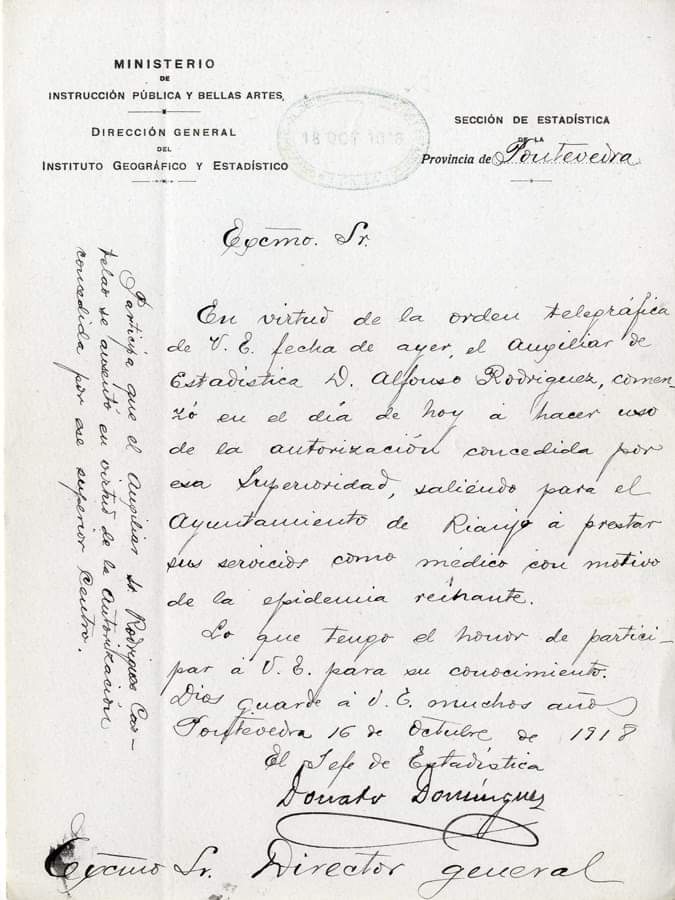 MINISTERIO
DE
INSTRUCCIÓN PÚBLICA Y BELLAS ARTES
DIRECCIÓN GENERAL
DEL
INSTITUTO GEOGRÁFICO Y ESTADÍSTICO
18 OCT 1918
SECCIÓN DE ESTADÍSTICA
DE LA
Provincia de Pontevedra
Excmo. Sr.
En virtud de la orden telegráfica
de V. E. fecha de ayer, el Auxiliar de
Estadística D. Alfonso Rodriguez, comen-
zó en el día de hoy á hacer uso
de la autorización concedida por
esa Superioridad, saliendo para el
Ayuntamiento de Rianjo á prestar
sus servicios como médico con motivo
de la epidemia reinante.
Lo que tengo el honor de partici-
par á V. E. para su conocimiento.
Dios guarde á V. E. muchos años
Pontevedra 16 de Octubre de 1918
El Jefe de Estadística
Donato Domínguez
Excmo Sr. Director general
Participa que el Auxiliar Sr Rodriguez Cas-
telao se ausentó en virtud de la autorización
concedida por ese superior Centro.